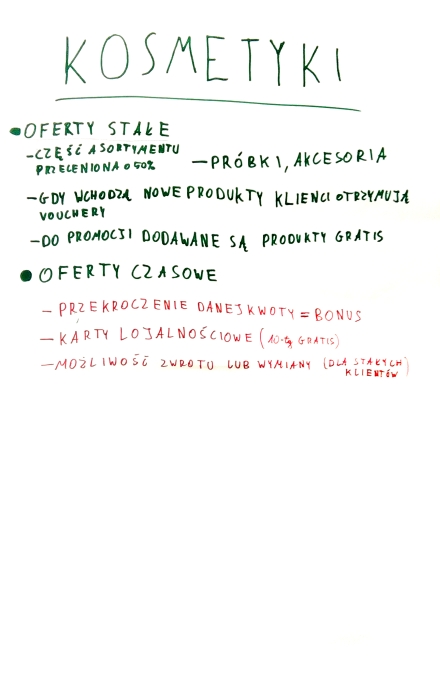 KOSMETYKI
OFERTY STAŁE
- CZĘŚĆ ASORTYMENTU
PRZECENIONA o 50%
- PRÓBKI, AKCESORIA
- GDY WCHODZĄ NOWE PRODUKTY KLIENCI OTRZYMUJĄ
VOUCHERY
- DO PROMOCJI DODAWANE SĄ PRODUKTY GRATIS
OFERTY CZASOWE
- PRZEKROCZENIE DANEJ KWOTY = BONUS
- KARTY LOJALNOŚCIOWE (10-ty GRATIS)
- MOŻLIWOŚĆ ZWROTU LUB WYMIANY (DLA STAŁYCH
KLIENTÓW)